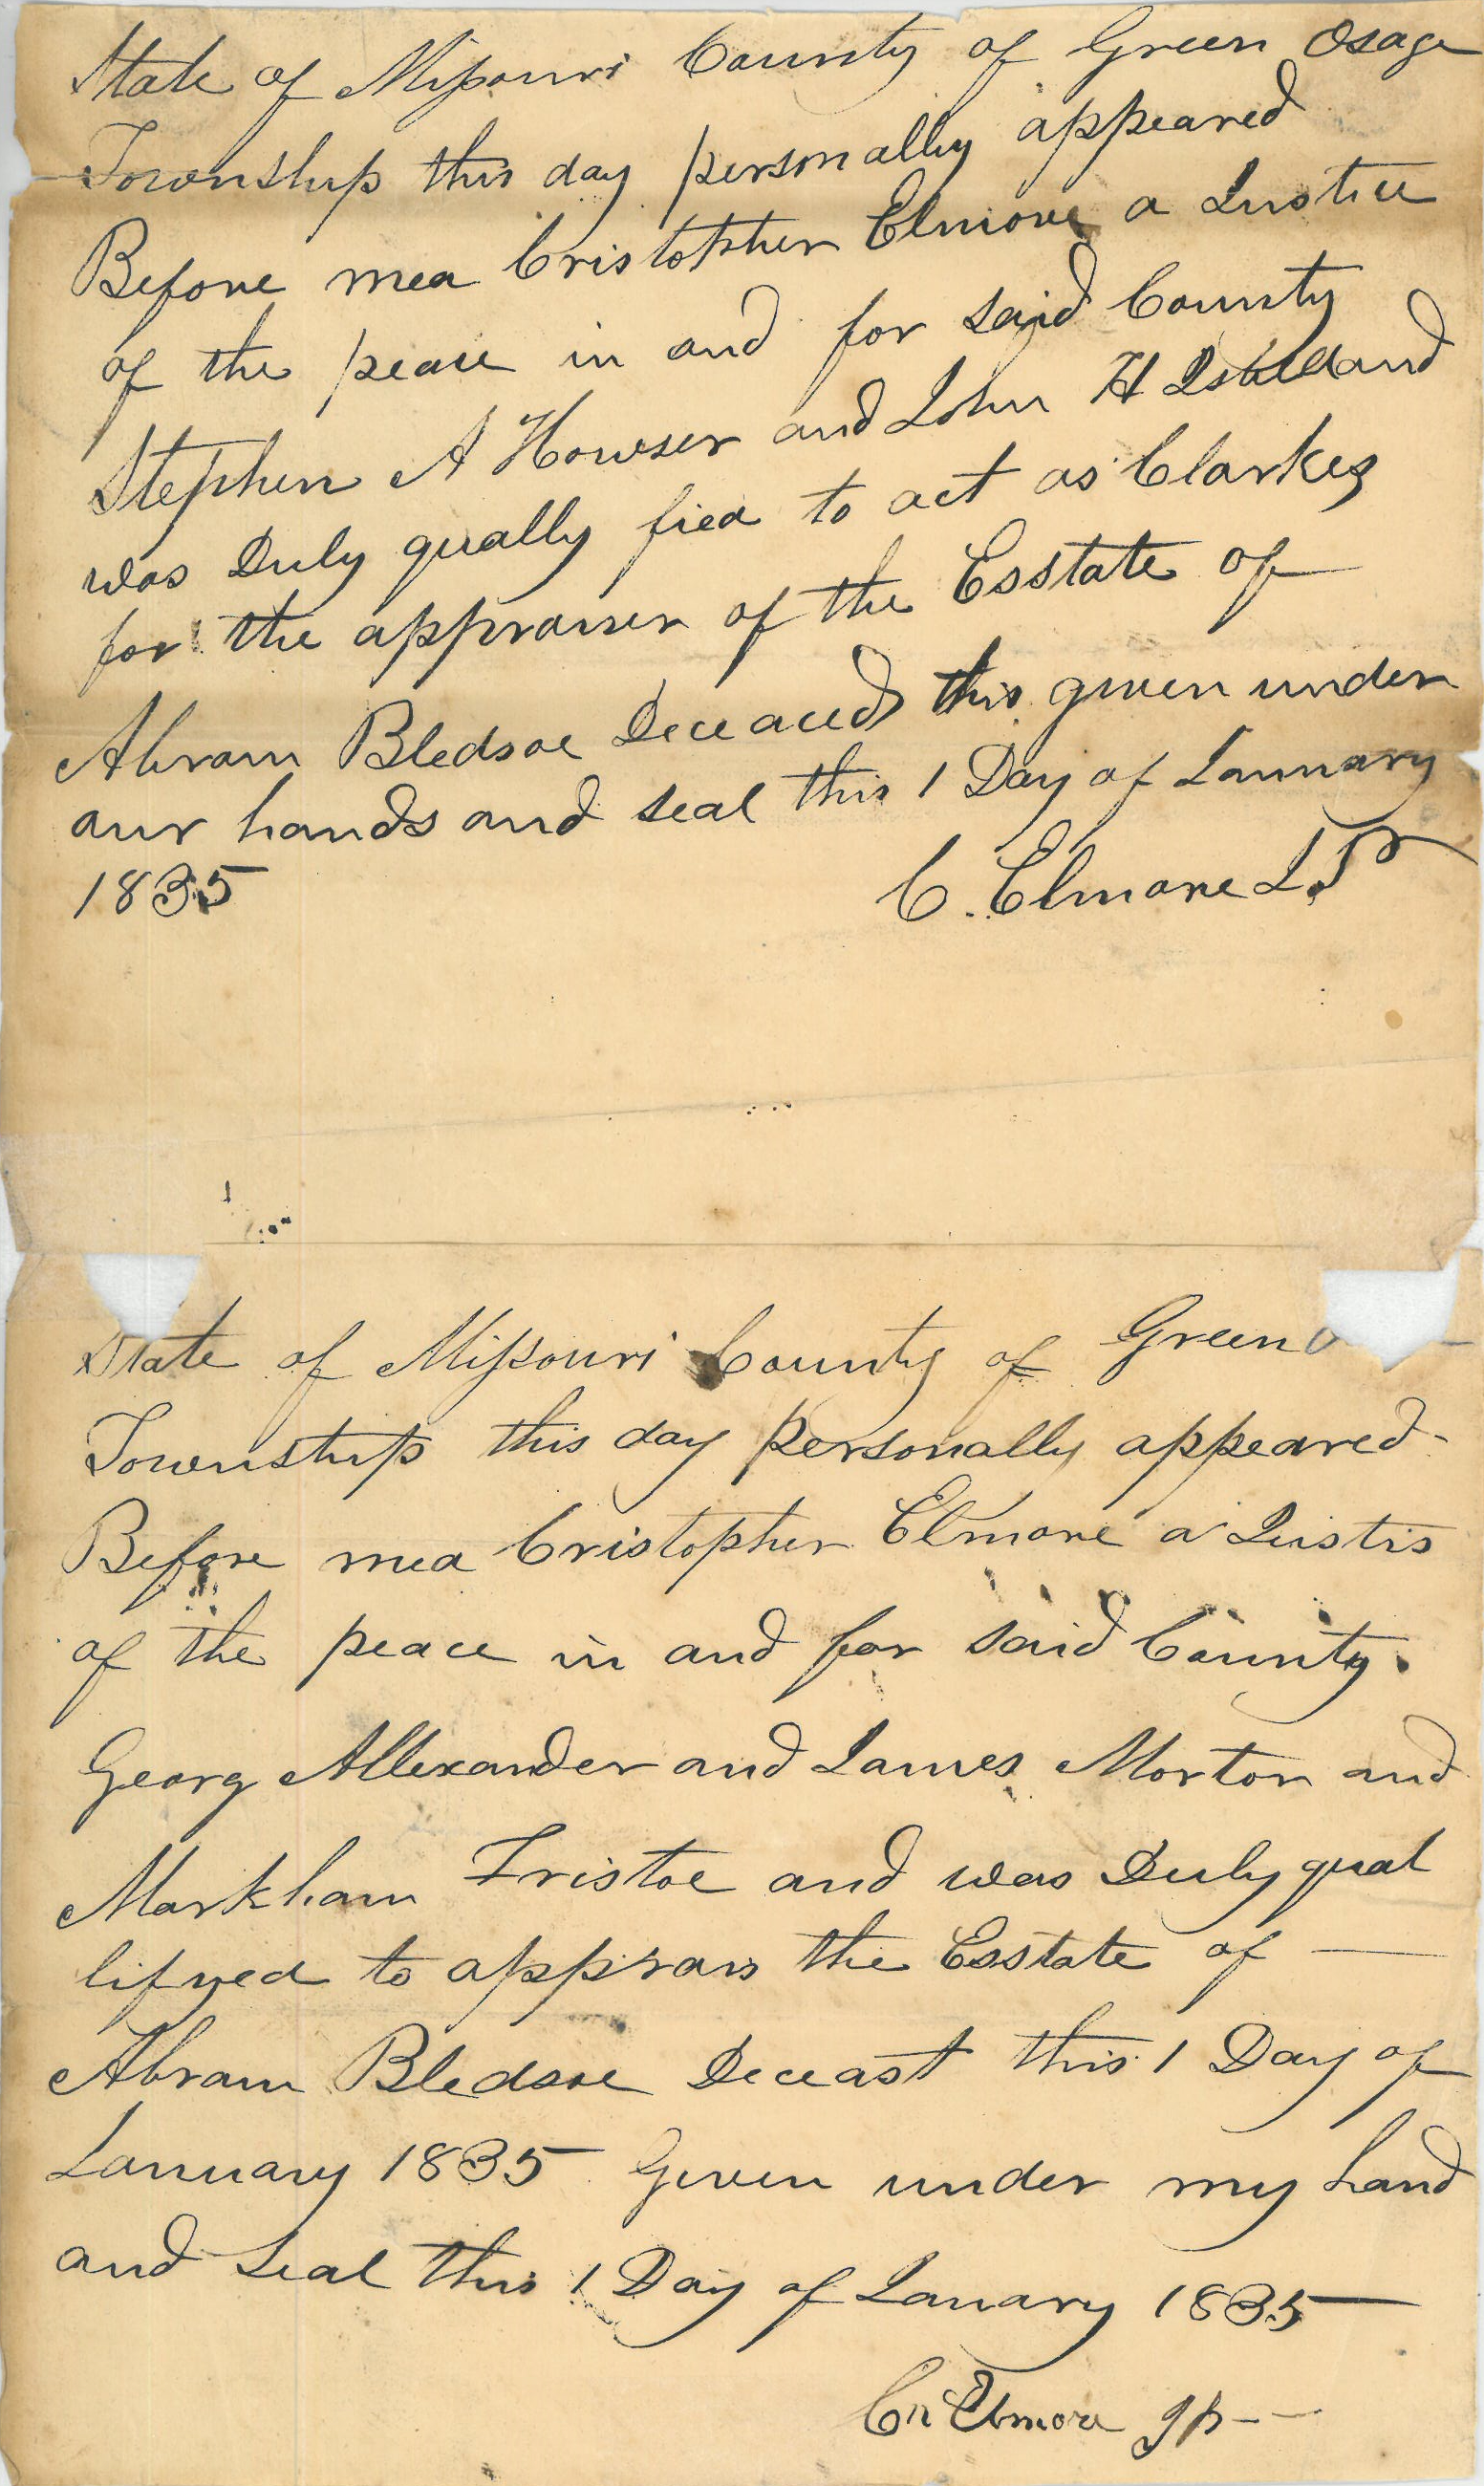 State of Missouri County of Green Osage
Township this day personally appeared
Before mea Cristopher Elmore a Justice
of the peace in and for said County
Stephen A Howser and John H and
was Duly qually fied to act as Clarkes
for the appraiser of the Esstate of
Abram Bledsoe Deceaced this given under
our hands and seal this 1 Day of January
1835 C. Elmore J.P
State of Missouri County of Green
Township this day personally appeared
Before mea Cristopher Elmore a Justis
of the peace in and for said County
Georg Allexander and James Morton and
Markham Fristoe and was Duly qual
lifyed to apprais the Esstate of
Abram Bledsoe Deceast this 1 Day of
January 1835 Given under my hand
and seal this 1 Day of Janary 1835
Cr Elmore Jp